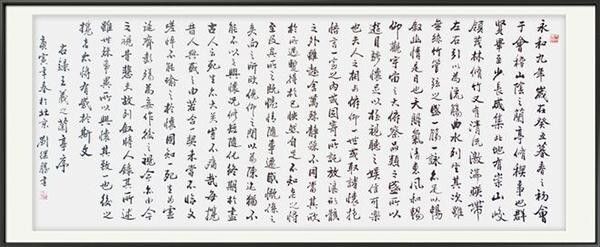 永和九年歲在癸丑暮春之初會
于會稽山陰之蘭亭脩稧事也群
賢畢至少長咸集此地有崇山峻
領茂林脩竹又有清流激湍暎帶
左右引以為流觴曲水列坐其次雖
無絲竹管弦之盛一觴一詠亦足以暢
敘幽情是日也天朗氣清惠風和暢
仰觀宇宙之大俯察品類之盛所以
遊目騁懷足以極視聽之娛信可樂
也夫人之相與俯仰一世或取諸懷抱
悟言一室之內或因寄所託放浪形骸
之外雖趣舍萬殊靜躁不同當其欣
於所遇暫得於己快然自足不知老之將
至及其所之既惓情隨事遷感慨係之
矣向之所欣俛仰之間以為陳迹猶不
能不以之興懷況脩短隨化終期於盡
古人云死生亦大矣豈不痛哉每攬
昔人興感之由若合一契未嘗不臨文
嗟悼不能喻之於懷固知一死生為虛
誕齊彭殤為妄作後之視今亦由今
之視昔悲夫故列敘時人錄其所述
雖世殊事異所以興懷其致一也後之
攬者亦將有感於斯文
右錄王羲之蘭亭序
庚寅年春於北京 劉